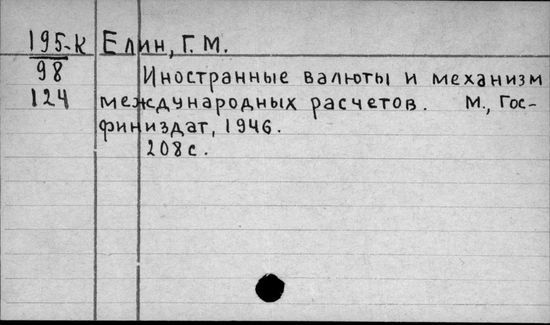 195-к Елин, Г. М.
98 Иностранные валюты и механизм
124 международных расчетов. М., Гос-
финиздат, 1946.
208с.